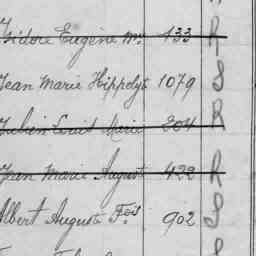 Isidore Eugène Mie 133 R
Jean Marie Hippolyte 1079 S
Julien Louis Marie 304 R
Jean Marie August 422 R
Albert August Fois 902 S